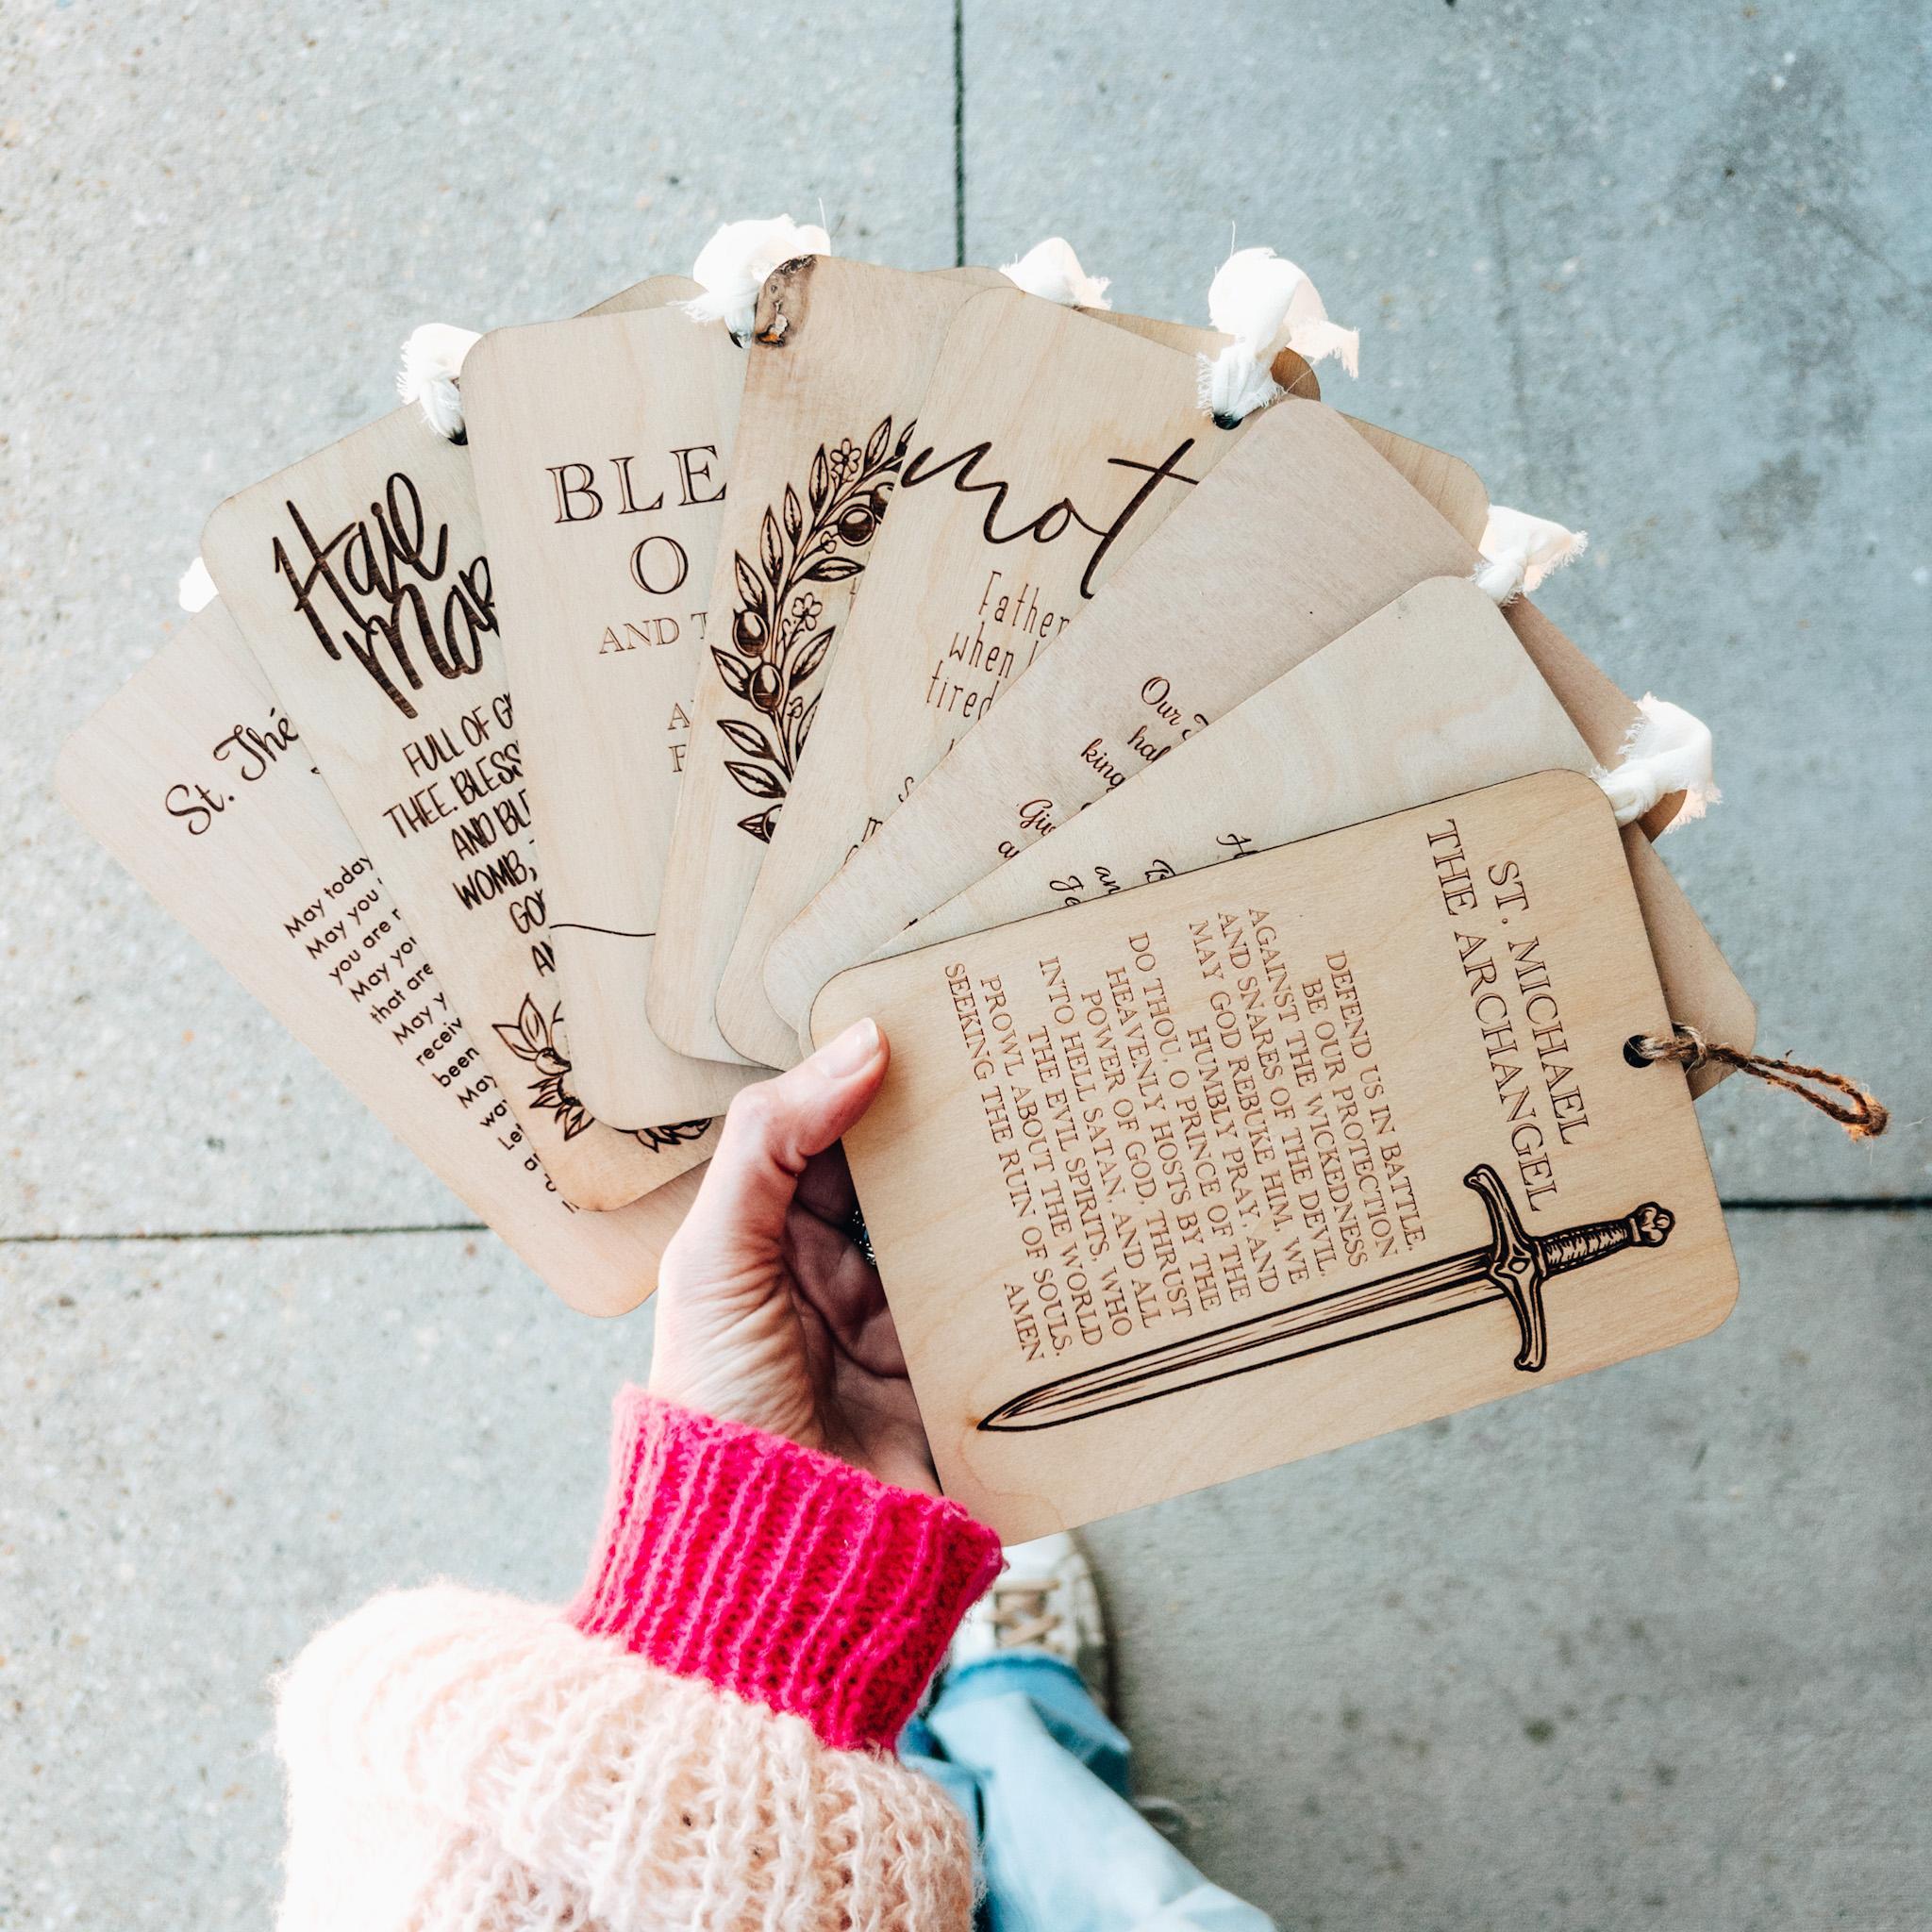 St. Thé
May today
May you
you are
May you
that are
May y
receiv
been
May
way
Le
Hail
Mar
FULL OF G
THEE. BLESS
AND BL
WOMB,
GO
BLE
O
AND T
mot
Father
when
tired
Our
hal
king
Giv
an
ST. MICHAEL
THE ARCHANGEL
DEFEND US IN BATTLE.
BE OUR PROTECTION
AGAINST THE WICKEDNESS
AND SNARES OF THE DEVIL.
MAY GOD REBUKE HIM, WE
HUMBLY PRAY, AND
DO THOU, O PRINCE OF THE
HEAVENLY HOSTS BY THE
POWER OF GOD, THRUST
INTO HELL SATAN, AND ALL
THE EVIL SPIRITS, WHO
PROWL ABOUT THE WORLD
SEEKING THE RUIN OF SOULS.
AMEN